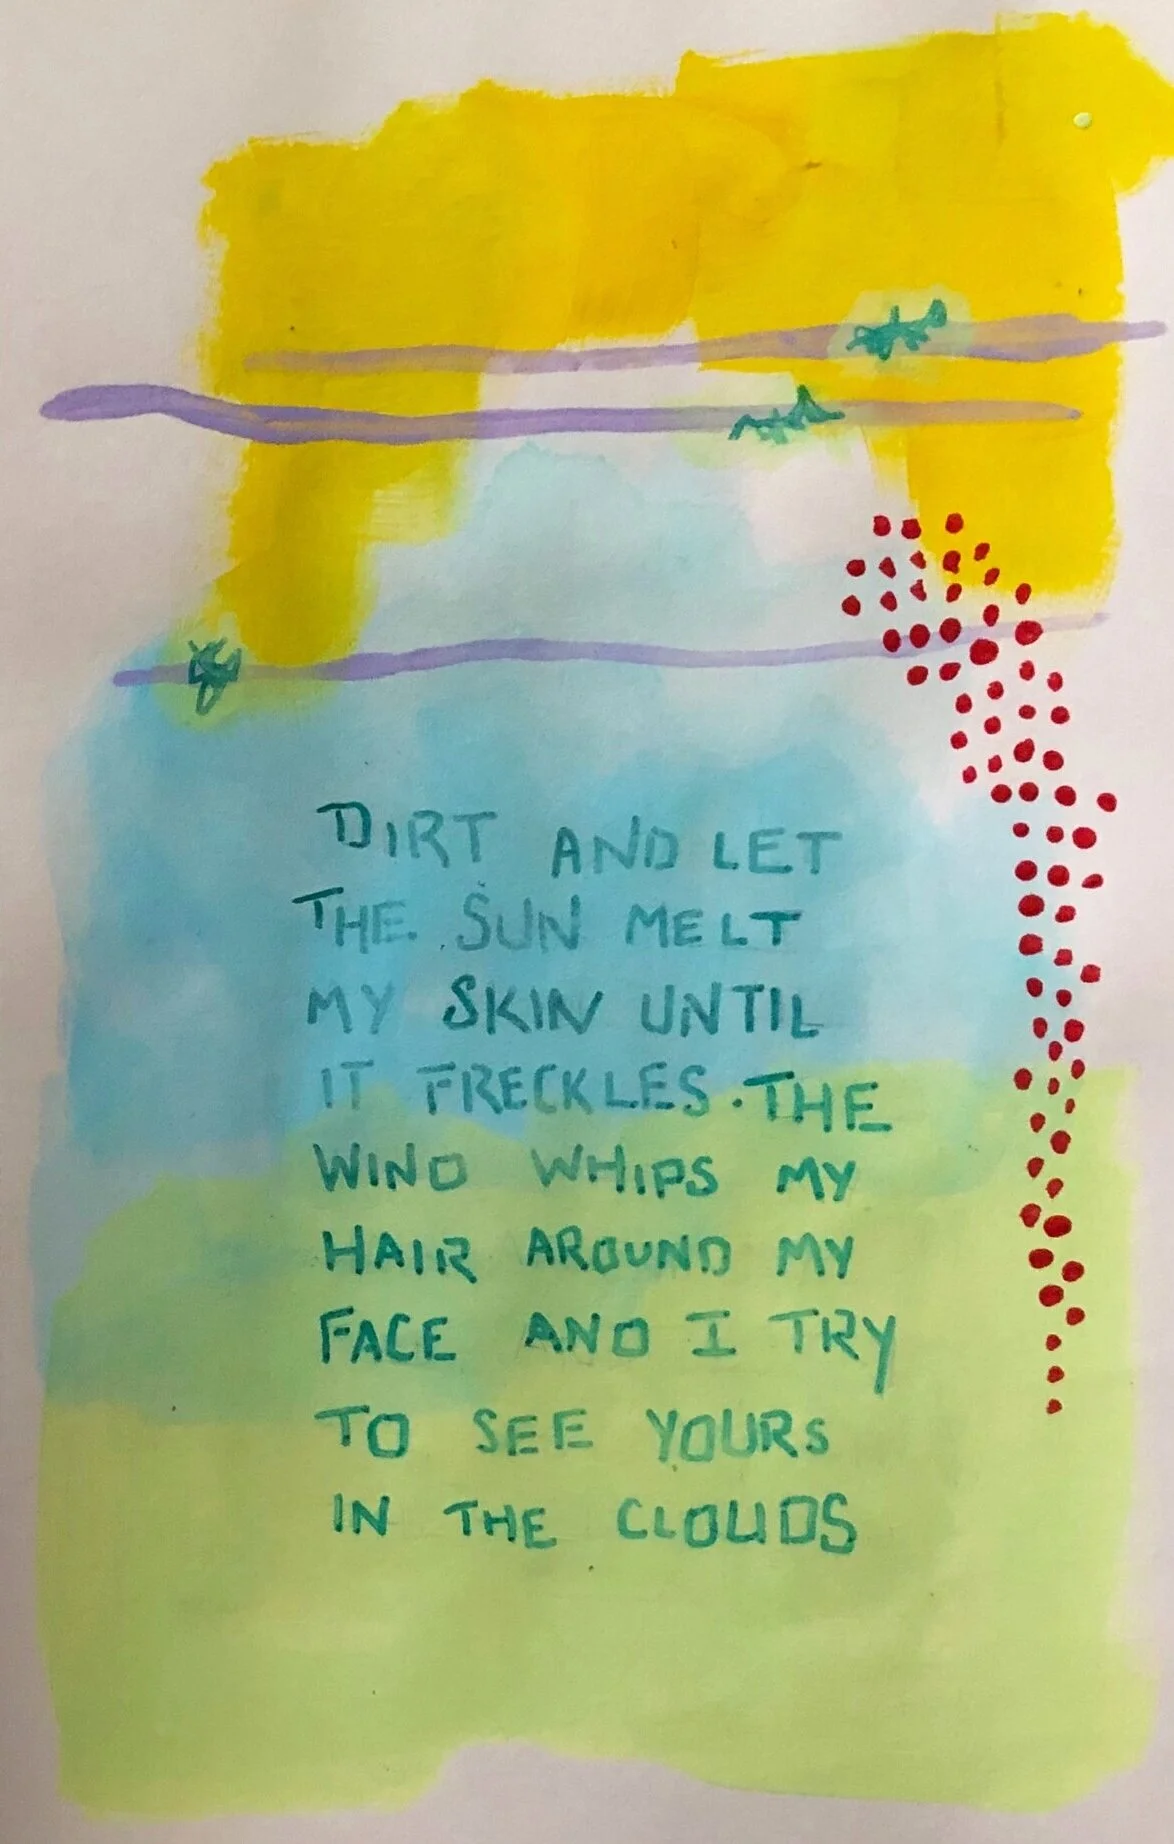 DIRT AND LET
THE SUN MELT
MY SKIN UNTIL
IT FRECKLES. THE
WIND WHIPS MY
HAIR AROUND MY
FACE AND I TRY
TO SEE YOURS
IN THE CLOUDS